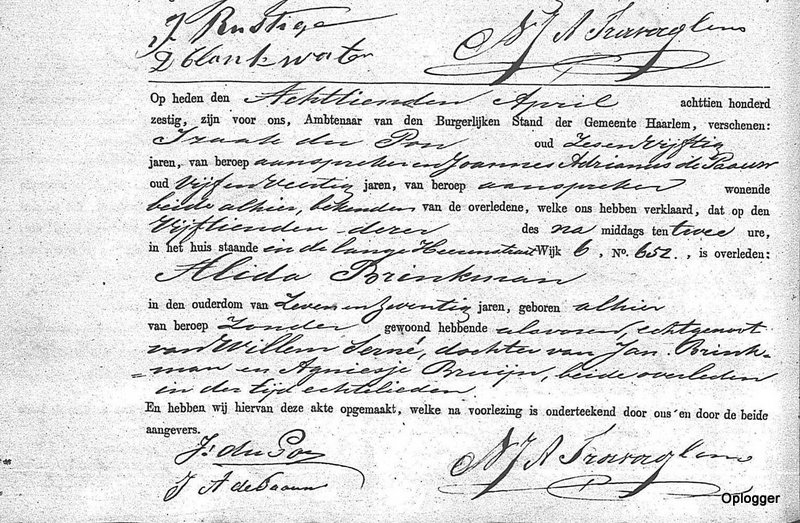 J Rustige
D blankwater
N J A Travaglino
Op heden den Achttienden April achttien honderd
zestig, zijn voor ons, Ambtenaar van den Burgerlijken Stand der Gemeente Haarlem, verschenen:
Izaak du Pon oud Zesenvijftig
jaren, van beroep aanspreker en Joannes Adrianus de Paauw
oud Vijf en Veertig jaren, van beroep aanspreker wonende
beide alhier, bekenden van de overledene, welke ons hebben verklaard, dat op den
Vijftienden dezer des na middags ten twee ure,
in het huis staande in de lange Heerenstraat Wijk 6, No. 652., is overleden:
Alida Brinkman
in den ouderdom van Zeven en Zeventig jaren, geboren alhier
van beroep Zonder gewoond hebbende alsvoren, echtgenoot
van Willem Serné, dochter van Jan Brink-
=man en Agniesje Bruijn, beide overleden
in der tijd echtelieden
En hebben wij hiervan deze akte opgemaakt, welke na voorlezing is onderteekend door ons en door de beide
aangevers.
J: du Pon
J A de Paauw
N J A Travaglino
Oplogger